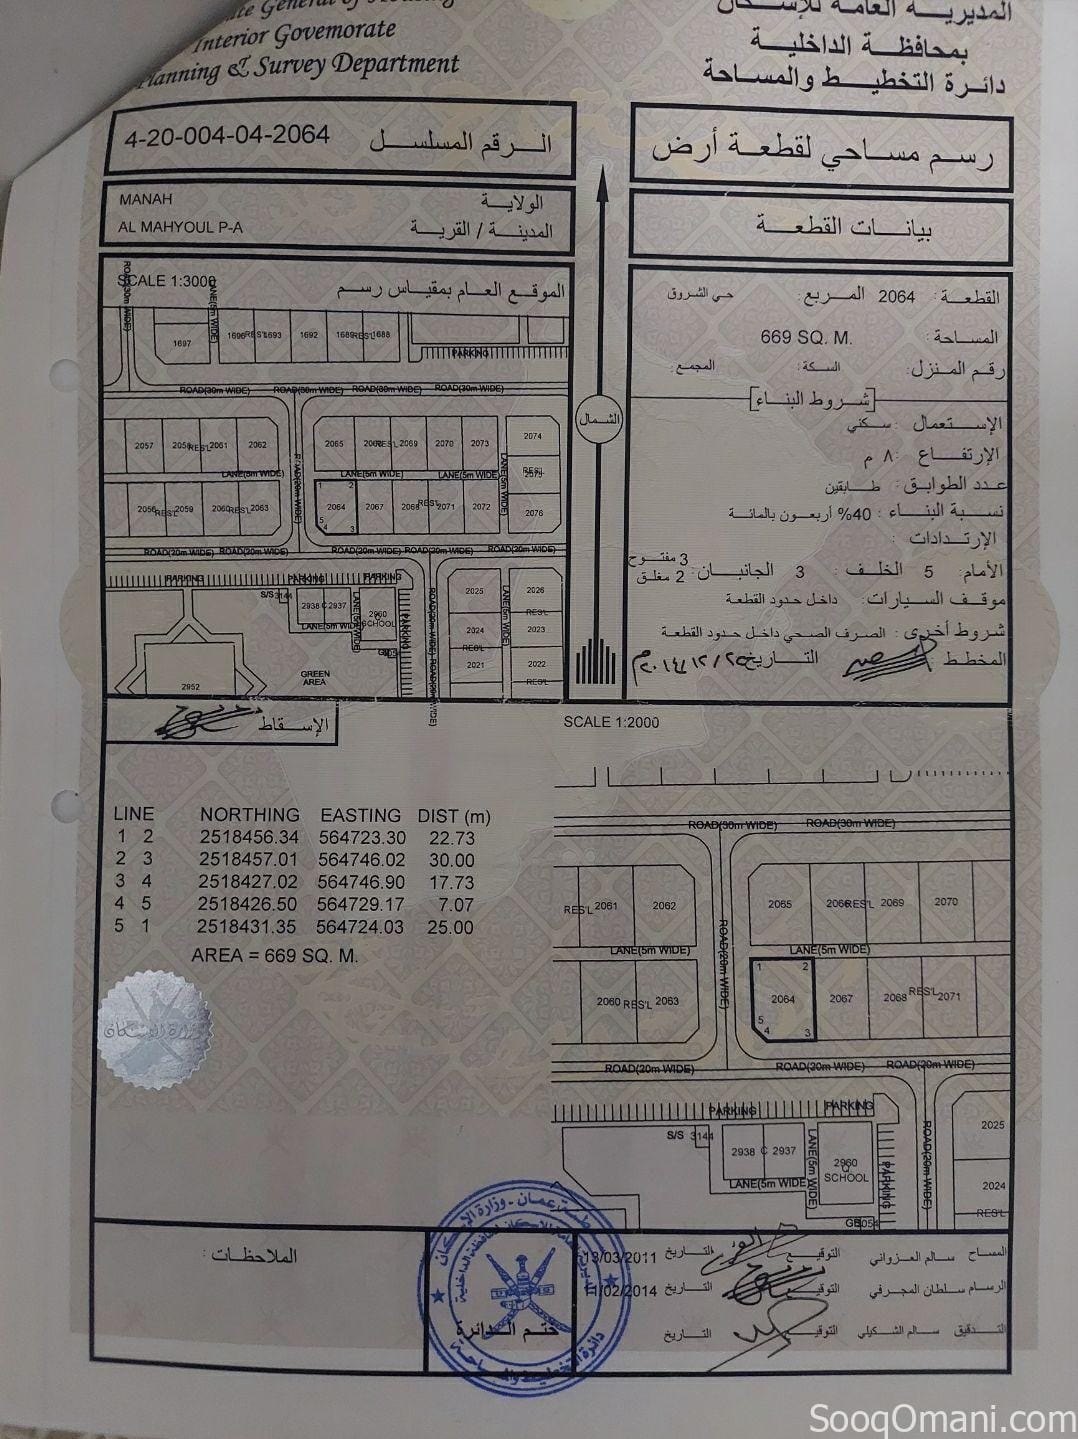 Interior Governorate
Planning & Survey Department
المديريـة العامة للإسكان
بمحافظـة الداخلية
دائـرة التخطيـط والمساحة
4-20-004-04-2064
الـرقم المسلسـل
رسـم مسـاحي لقطعـة أرض
MANAH
الولايـة
AL MAHYOUL P-A
المدينـة / القرية
بيانـات القطعـة
SCALE 1:3000
الموقـع العـام بمقيـاس رسـم
القطعـة : 2064 المـربع : حي الشروق
المساحة : 669 SQ. M.
رقـم المـنزل : السكـة : المجمـع :
شـروط البنـاء
الإستعمال : سكني
الإرتفـاع : ٨ م
عدد الطوابـق : طابقين
نسبـة البناء : 40% أربعـون بالمائة
الإرتدادات :
الأمام: 5 الخلـف : 3 الجانبـان: 3 مفتـوح
2 مغلـق
موقف السيارات: داخل حدود القطعة
شـروط أخرى : الصرف الصحي داخل حـدود القطعة
المخطـط
التــاريخ
الشمـال
1697
1696
RES'L
1693
1692
1689
RES'L
1688
PARKING
ROAD(30m WIDE)
LANE(5m WIDE)
ROAD(30m WIDE)
ROAD(30m WIDE)
ROAD(30m WIDE)
ROAD(30m WIDE)
2057
2058
RES'L
2061
2062
2065
2066
RES'L
2069
2070
2073
2074
RES'L
2075
LANE(5m WIDE)
LANE(5m WIDE)
LANE(5m WIDE)
ROAD(20m WIDE)
LANE(5m WIDE)
RES'L
2059
2060
RES'L
2063
1 2
2064
5
4 3
2067
2068
RES'L
2071
2072
2076
ROAD(20m WIDE)
ROAD(20m WIDE)
ROAD(20m WIDE)
ROAD(20m WIDE)
ROAD(20m WIDE)
PARKING
PARKING
PARKING
S/S
3144
2938
C
2937
2960
SCHOOL
LANE(5m WIDE)
LANE(5m WIDE)
PARKING
ROAD(20m WIDE)
2025
2026
RES'L
2024
2023
RES'L
2021
2022
RES'L
LANE(5m WIDE)
GREEN
AREA
2952
الإسـقاط
SCALE 1:2000
LINE NORTHING EASTING DIST (m)
1 2 2518456.34 564723.30 22.73
2 3 2518457.01 564746.02 30.00
3 4 2518427.02 564746.90 17.73
4 5 2518426.50 564729.17 7.07
5 1 2518431.35 564724.03 25.00
AREA = 669 SQ. M.
ROAD(30m WIDE)
ROAD(30m WIDE)
RES'L
2061
2062
2065
2066
RES'L
2069
2070
LANE(5m WIDE)
LANE(5m WIDE)
ROAD(20m WIDE)
2060
RES'L
2063
1 2
2064
5
4 3
2067
2068
RES'L
2071
ROAD(20m WIDE)
ROAD(20m WIDE)
ROAD(20m WIDE)
PARKING
PARKING
S/S
3144
2938
C
2937
2960
SCHOOL
LANE(5m WIDE)
LANE(5m WIDE)
PARKING
ROAD(20m WIDE)
2025
2024
RES'L
الملاحظـات :
ختـم الـدائرة
المساح سالم العـزواني التوقيـع التاريخ 13/03/2011
الرسام سلطان المجـرفي التوقيـع التاريخ 11/02/2014
التـدقيق سـالم الشكيلي التوقيـع التاريخ
SooqOmani.com